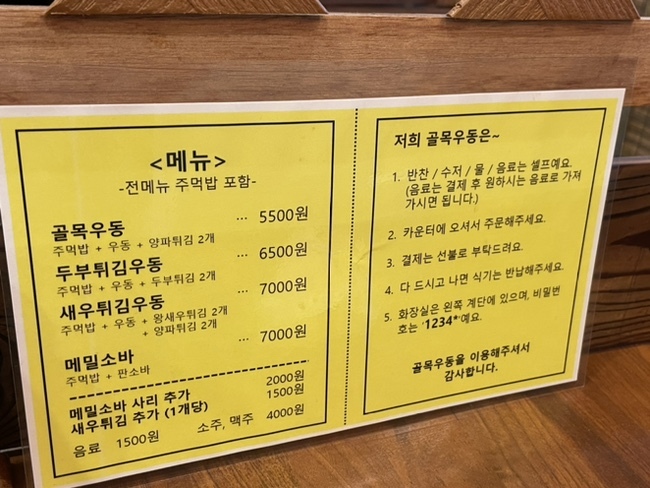 <메뉴>
-전메뉴 주먹밥 포함-
골목우동 ... 5500원
주먹밥 + 우동 + 양파튀김 2개
두부튀김우동 ... 6500원
주먹밥 + 우동 + 두부튀김 2개
새우튀김우동 ... 7000원
주먹밥 + 우동 + 왕새우튀김 2개
+ 양파튀김 2개
메밀소바 ... 7000원
주먹밥 + 판소바
메밀소바 사리 추가 2000원
새우튀김 추가 (1개당) 1500원
음료 1500원 소주, 맥주 4000원
저희 골목우동은~
1. 반찬 / 수저 / 물 / 음료는 셀프예요.
(음료는 결제 후 원하시는 음료로 가져
가시면 됩니다.)
2. 카운터에 오셔서 주문해주세요.
3. 결제는 선불로 부탁드려요.
4. 다 드시고 나면 식기는 반납해주세요.
5. 화장실은 왼쪽 계단에 있으며, 비밀번
호는 '1234*'예요.
골목우동을 이용해주셔서
감사합니다.